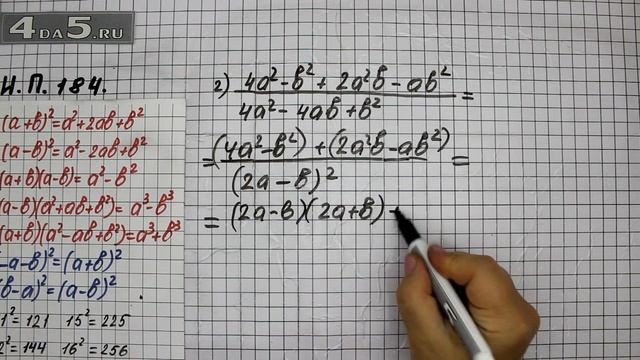 4DA5.RU
И.П. 184.
(a+b)²=a²+2ab+b²
(a-b)²=a²-2ab+b²
(a+b)(a-b)=a²-b²
(a-b)(a²+ab+b²)=a³-b³
(a+b)(a²-ab+b²)=a³+b³
-a-b)²=(a+b)²
b-a)²=(a-b)²
1²=121 15²=225
2²=144 16²=256
2) 4a²-b²+2a²b-ab²
4a²-4ab+b² =
= (4a²-b²)+(2a²b-ab²)
(2a-b)² =
= (2a-b)(2a+b)+